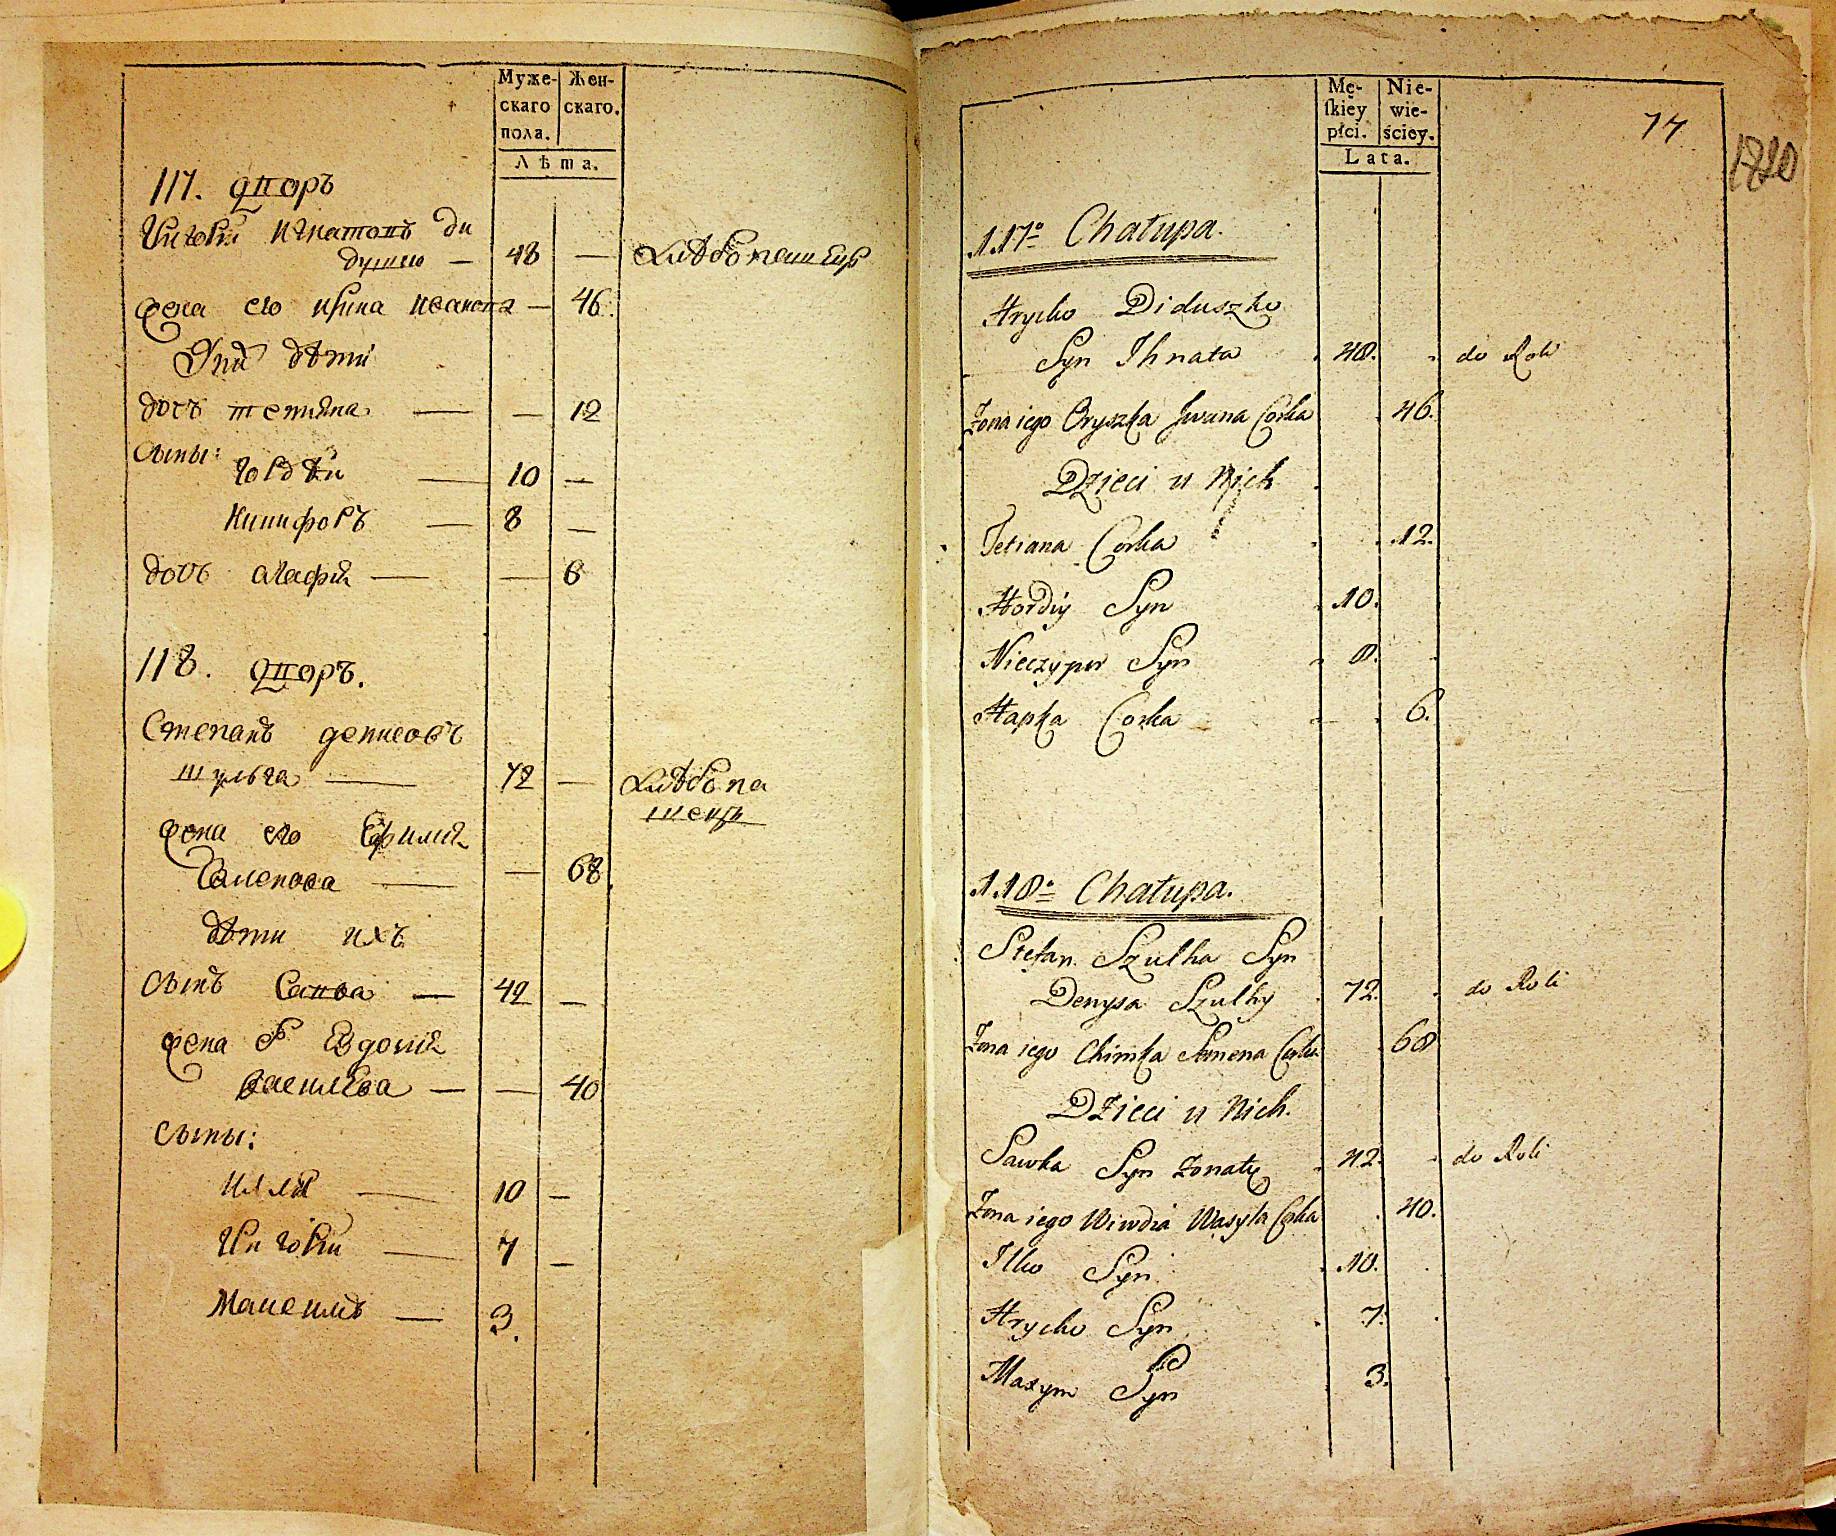 Муже-
скаго
пола.
Жен-
скаго.
Лѣта.
117. дворъ
Григорій Игнатовъ ди
душко — 48 —
жена его Ирина Иванова — 46.
У них дѣти
дочь тетияна — — 12
сыны:
Гордѣи — 10 —
Ничифоръ — 8 —
дочь агафия — — 6
118. дворъ.
Степанъ денисовъ
шульга — 72 — хлѣбопа
шецъ
жена его Ефимия
Семенова — — 68.
дѣти ихъ
сынъ Савва — 42 —
жена Евдокия
василева — — 40
Сыны:
Илля — 10 —
Григорѣи — 7 —
Максимъ — 3.
Mę-
skiéy
płci.
Nie-
wie-
ściey.
Lata.
77
1820
117º Chałupa.
Hrycko Diduszko
Syn Ihnata 48. do Roli
Żona iego Oryszka Iwana Corka 46.
Dzieci u Nich
Tetiana Corka 12.
Hordiy Syn 10.
Nieczypor Syn 8.
Hapka Corka 6.
118º Chałupa.
Stefan Szulha Syn
Denysa Szulhy 72. do Roli
Żona iego Chimka Semena Corka 68
Dzieci u Nich.
Sawka Syn żonaty 42. do Roli
Żona iego Wiwdia Wasyla Corka 40.
Ilko Syn 10.
Hrycko Syn 7.
Maxym Syn 3.